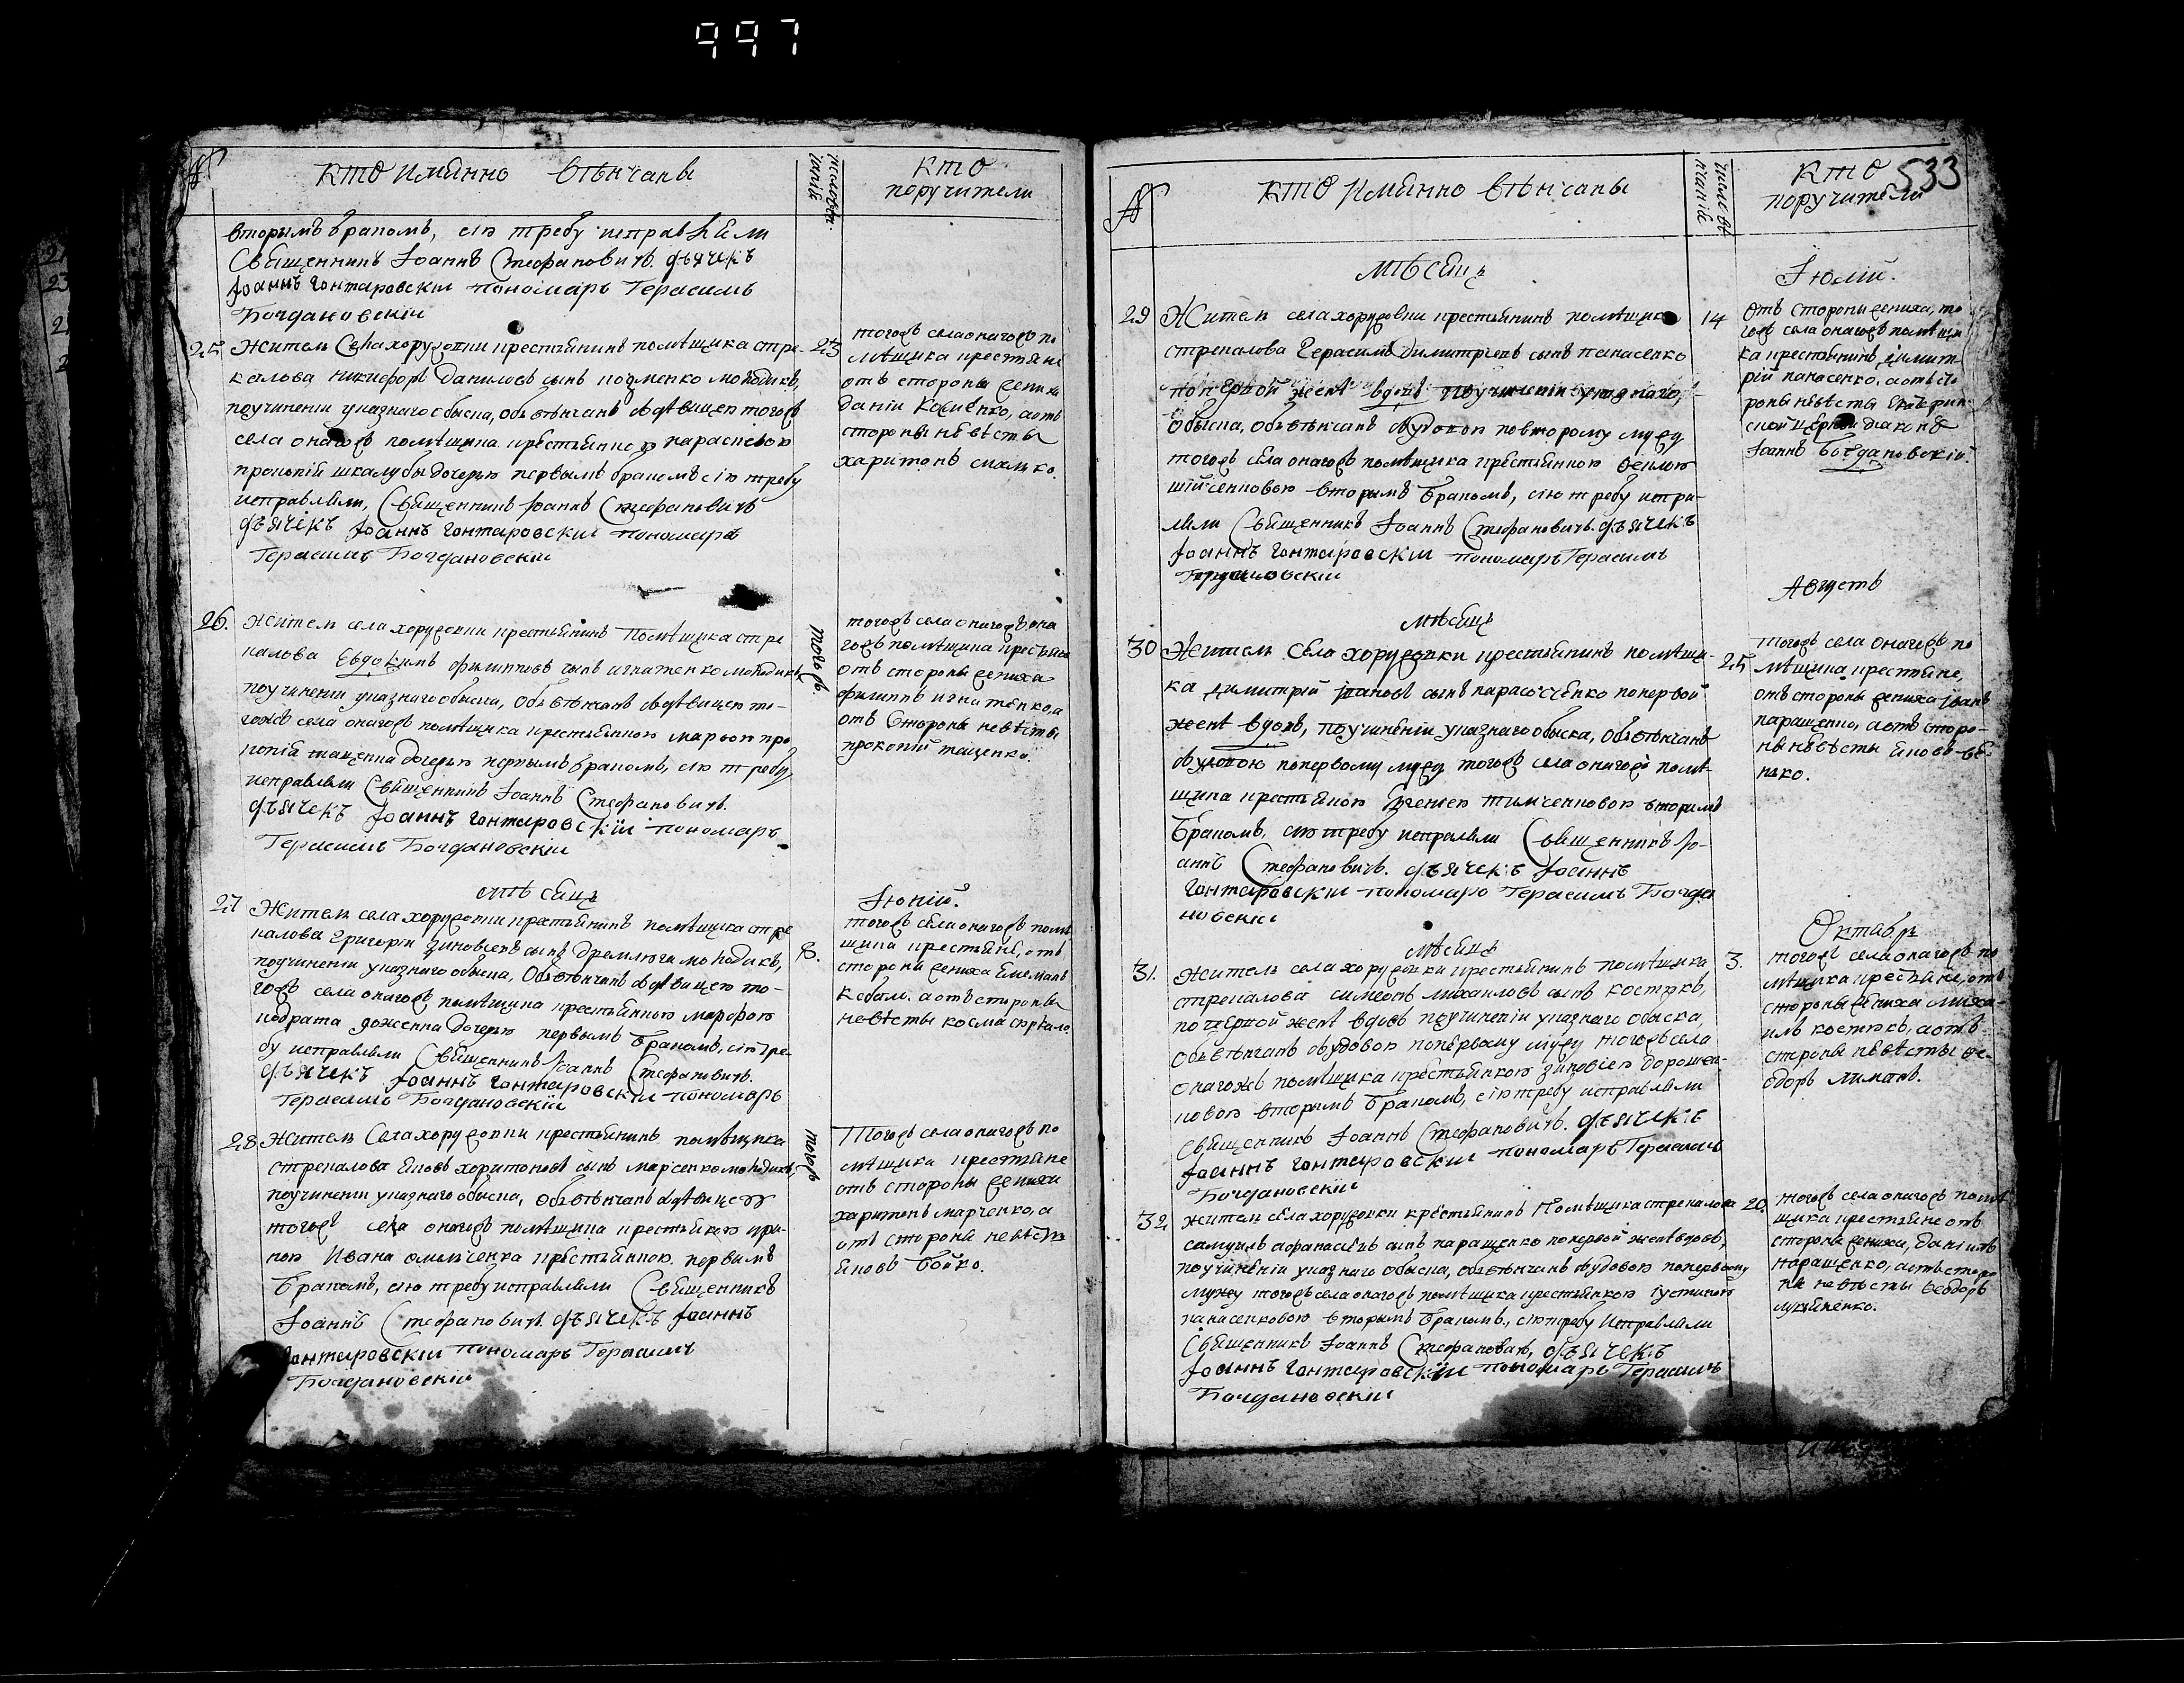 997
№ Кто имянно вѣнчаны
Кто
поручители
вторымъ бракомъ, сію требу исправляли
Священникъ Іоаннъ Стефановичъ. дъячекъ
Іоаннъ Гонтаровскій пономаръ Герасимъ
Богдановскій
25 Жител села хоружовки крестьянинъ помѣщика стре-
калова никифоръ данилов сынъ козменко молодикъ,
поучиненіи указнаго обыска, обвѣнчанъ здѣвицею тогожъ
села оногожъ помѣщика крестьянкою параскевою
прокопія шкалубы дочерью первымъ бракомъ сію требу
исправляли, Священникъ Іоаннъ Стефановичъ
дъячекъ Іоаннъ Гонтаровскій пономаръ
Герасимъ Богдановскій
23
тогожъ села оногожъ по
мѣщика крестьяне
отъ стороны жениха
даніи, аотъ
стороны невѣсты
харитонъ
26. Жител села хоружовки крестьянинъ помѣщика стре
калова Евдокимъ филиповъ сынъ игнатенко молодикъ,
поучиненіи указнаго обыска, обвѣнчанъ здѣвицею то-
гожъ села оногожъ помѣщика крестьянкою марьею про
копія тащенка дочерью первымъ бракомъ, сію требу
исправляли Священникъ Іоаннъ Стефановичъ.
дъячекъ Іоаннъ Гонтаровскій пономаръ
Герасимъ Богдановскій
тогожъ
тогожъ села оногожъ
помѣщика крестьяне
отъ стороны жениха
филиппъ игнатенко, а
отъ стороны невѣсты
прокопій тащенко.
мѣсяцъ
Іюній.
27 Жител села хоружовки крестьянинъ помѣщика стре
калова григорій зиновіевъ сынъ дремлюга молодикъ,
поучиненіи указнаго обыска, обвѣнчанъ здѣвицею то-
гожъ села оногожъ помѣщика крестьянкою марфою
кодрата доженка дочерью первымъ бракомъ, сію тре-
бу исправляли Священникъ Іоаннъ Стефановичъ.
дъячекъ Іоаннъ Гонтаровскій пономаръ
Герасимъ Богдановскій
8.
тогожъ села оногожъ помѣ
щика крестьяне, отъ
стороны жениха
аотъ стороны
невѣсты косма
28 Жител села хоружовки крестьянинъ помѣщика
стрекалова яковъ харитоновъ сынъ марченко молодикъ,
поучиненіи указнаго обыска, обвѣнчанъ здѣвицею
тогожъ села оногожъ помѣщика крестьянкою ири-
ною Ивана омелченка крестьянкою первымъ
бракомъ, сію требу исправляли Священникъ
Іоаннъ Стефановичъ. дъячекъ Іоаннъ
Гонтаровскій пономаръ Герасимъ
Богдановскій
тогожъ
тогожъ села оногожъ по
мѣщика крестьяне
отъ стороны жениха
харитонъ марченко, а
отъ стороны невѣсты
яковъ бойко.
№ Кто имянно вѣнчаны
Кто
поручители
533
мѣсяцъ
Іюлій.
29 Жител села хоружовки крестьянинъ помѣщика
стрекалова герасимъ димитріевъ сынъ панасенко
попервой женѣ вдовъ поучиненіи указнаго
обыска, обвѣнчанъ звдовою повторому мужу
тогожъ села оногожъ помѣщика крестьянкою
вторымъ бракомъ, сію требу испра-
вляли Священникъ Іоаннъ Стефановичъ. дъячекъ
Іоаннъ Гонтаровскій пономаръ Герасимъ
Богдановскій
14
отъ стороны жениха, то
гожъ села оногожъ помѣщи
ка крестьянинъ димит-
рій панасенко, аотъ сто
роны невѣсты
Іоаннъ Богдановскій.
мѣсяцъ
Августъ
30 Жител села хоружовки крестьянинъ помѣщи-
ка димитрій ивановъ сынъ попервой
женѣ вдовъ, поучиненіи указнаго обыска, обвѣнчанъ
звдовою попервому мужу тогожъ села оногожъ помѣ-
щика крестьянкою вторымъ
бракомъ, сію требу исправляли Священникъ Іо-
аннъ Стефановичъ. дъячекъ Іоаннъ
Гонтаровскій пономаръ Герасимъ Богда
новскій
25
тогожъ села оногожъ по
мѣщика крестьяне,
отъ стороны жениха иванъ
паращенко, аотъ сторо-
ны невѣсты яковъ
мѣсяцъ
Октябрь
31. Жител села хоружовки крестьянинъ помѣщика
стрекалова симеонъ михаиловъ сынъ костюкъ,
попервой женѣ вдовъ поучиненіи указнаго обыска,
обвѣнчанъ звдовою попервому мужу тогожъ села
оногожъ помѣщика крестьянкою зиновіею дорошен-
ковою вторымъ бракомъ, сію требу исправляли
Священникъ Іоаннъ Стефановичъ. дъячекъ
Іоаннъ Гонтаровскій пономаръ Герасимъ
Богдановскій
3.
тогожъ села оногожъ по
мѣщика крестьяне, отъ
стороны жениха миха-
илъ костюкъ, аотъ
стороны невѣсты фе-
одоръ лиманъ.
32 Жител села хоружовки крестьянинъ помѣщика стрекалова
самуилъ афанасіевъ сынъ паращенко попервой женѣ вдовъ,
поучиненіи указнаго обыска, обвѣнчанъ звдовою попервому
мужу тогожъ села оногожъ помѣщика крестьянкою іустиною
панасенковою вторымъ бракомъ, сію требу исправляли
Священникъ Іоаннъ Стефановичъ, дъячекъ
Іоаннъ Гонтаровскій пономаръ Герасимъ
Богдановскій
20.
тогожъ села оногожъ помѣ
щика крестьяне отъ
стороны жениха, даніилъ
паращенко, аотъ сторо
ны невѣсты феодоръ